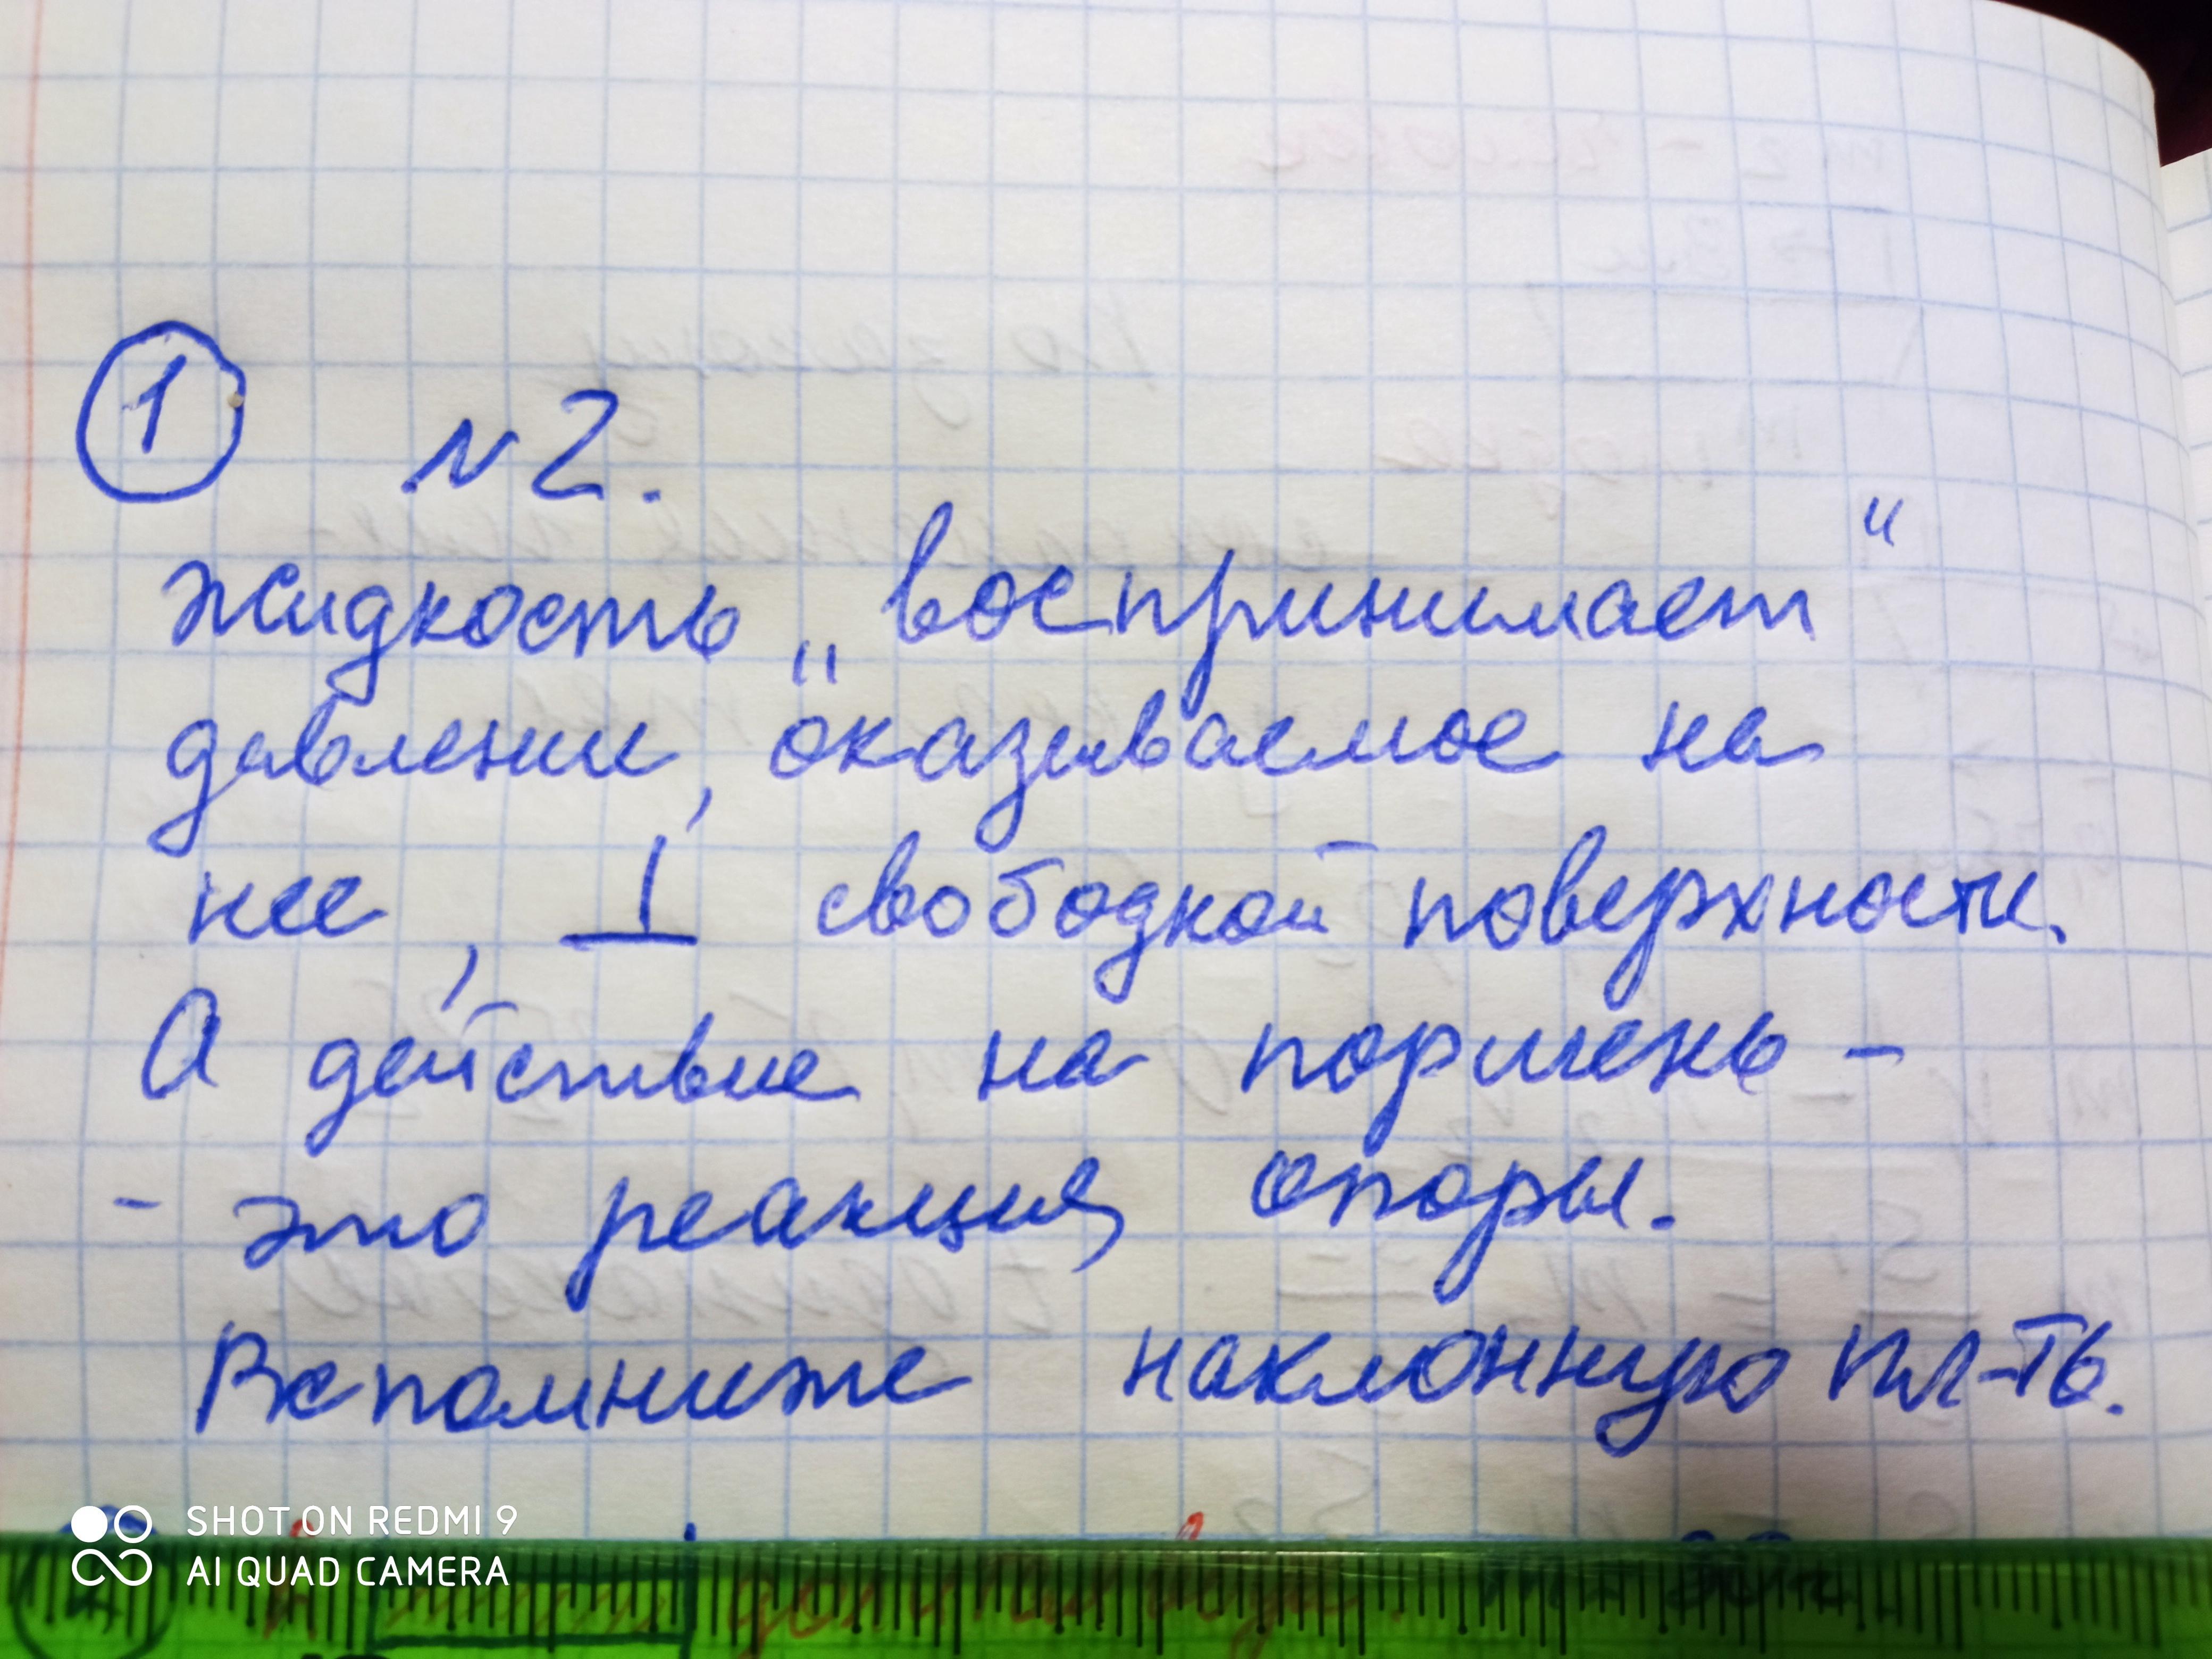 1 N 2.
жидкость „воспринимает“
давлении, оказываемое на
нее, ⊥ свободной поверхности.
А действие на поршень -
- это реакция опоры.
Вспомните наклонную пл-ть.
SHOT ON REDMI 9
AI QUAD CAMERA